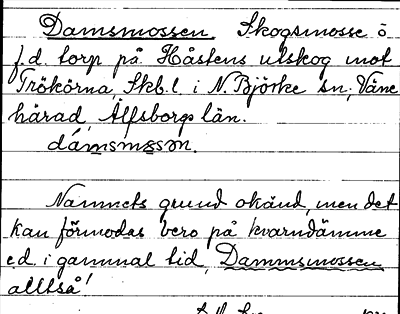 Damsmossen. Skogsmosse ö
f.d. torp på Håstens utskog mot
Trökörna, Skb.l. i N. Björke sn, Väne
härad, Älfsborgs län.
dámsmɷsən.
Namnets grund okänd, men det
kan förmodas bero på kvarndämme
e.d. i gammal tid, Dammsmossen
alltså!